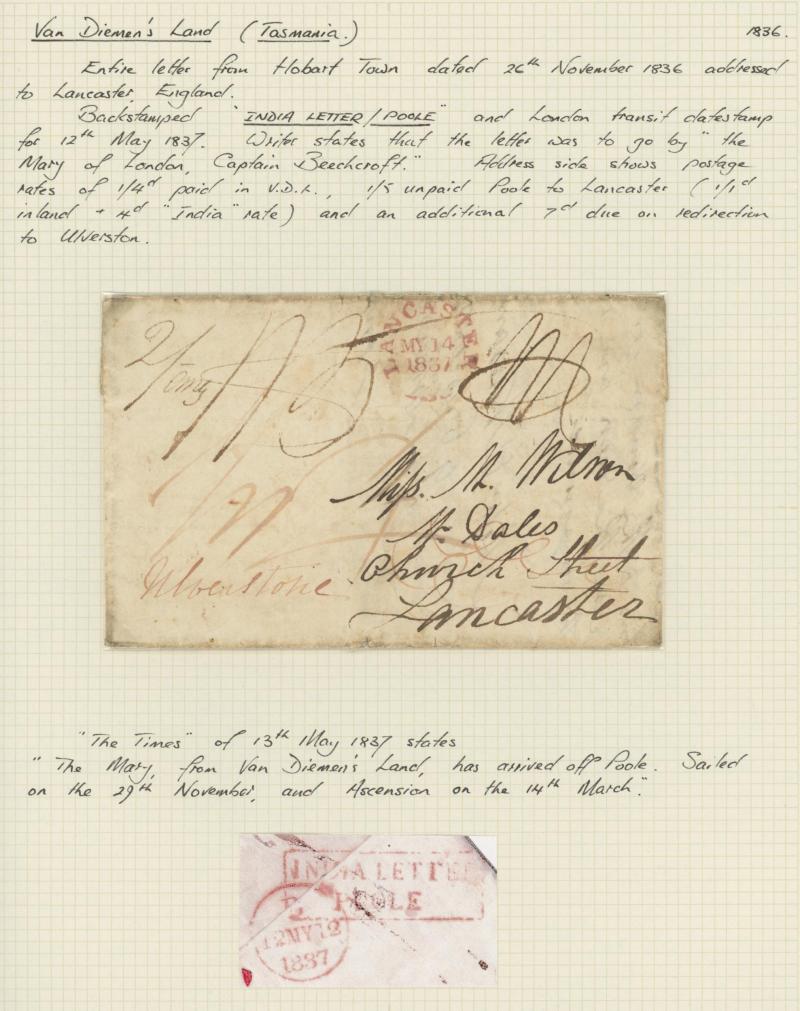 Van Diemen's Land (Tasmania.) 1836.
Entire letter from Hobart Town dated 26th November 1836 addressed
to Lancaster, England.
Backstamped "INDIA LETTER / POOLE" and London transit datestamp
for 12th May 1837. Writer states that the letter was to go by "the
Mary of London, Captain Beechcroft." Address side shows postage
rates of 1/4d paid in V.D.L., 1/5 unpaid Poole to Lancaster (1/1d
inland + 4d "India" rate) and an additional 7d due on redirection
to Ulverston.
LANCASTER
MY 14
1837
Miss. M. Wilson
Mr Dales
Church Street
Lancaster
Ulverstone
"The Times" of 13th May 1837 states
"The Mary, from Van Diemen's Land, has arrived off Poole. Sailed
on the 29th November, and Ascension on the 14th March".
INDIA LETTE
POOLE
12MY12
1837